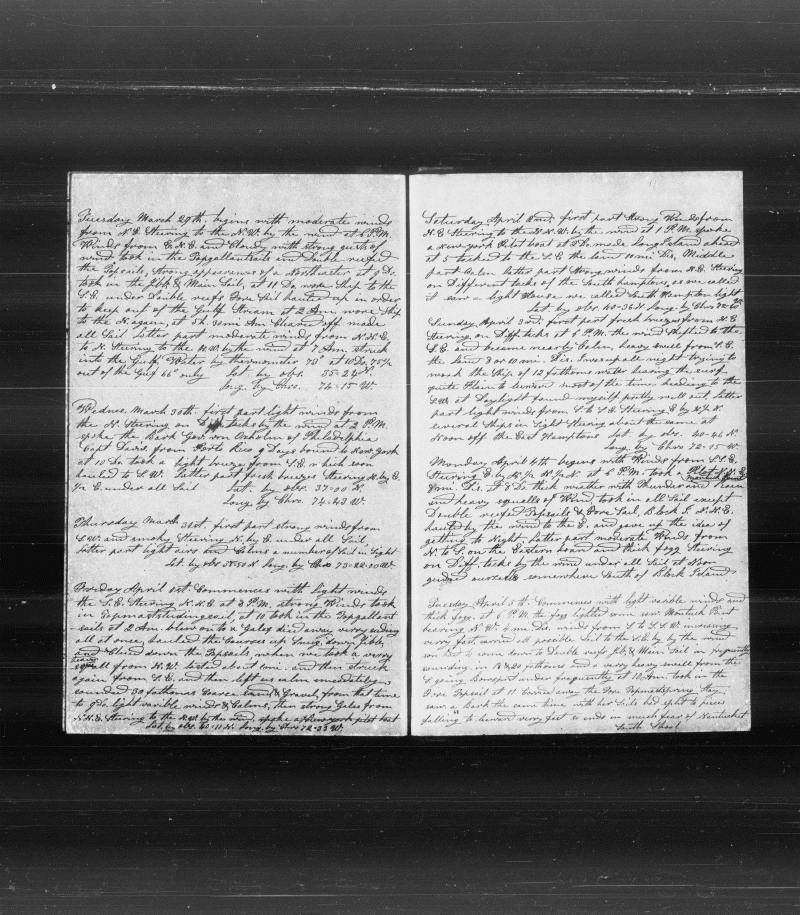 Tuesday March 29th, begins with moderate winds
from N.E. Steering to the N.W. by the wind at 6 P.M.
Winds from E.N.E. and Cloudy with strong gusts of
wind took in the Topgallantsails and Double reefed
the Topsails, Strong appearence of a Northeaster at 9 Do.
took in the Jibb & Main Sail, at 11 Do. wore Ship to the
S.E. under Double reefs Fore Sail hauled up in order
to keep out of the Gulf Stream at 2 Am. wore Ship
to the N. again, at 5 h. 30 mi Am Cleared off made
all Sail latter part moderate winds from N.N.E.
to N. Steering to the N.W. by the wind at 7 Am. struck
into the Gulf Water by Thermometer 73° at 10 Do. 75½
out of the Gulf 66° only Lat. by obs. 35-24 N.
Long. by Chro. 74-15 W.
Wednes. March 30th. first part light winds from
the N. Steering on Diff. tacks by the wind at 2 P.M.
spoke the Bark Gov. von Oxholm of Philadelphia
Capt. Davis. from Porto Rico 9 Days bound to New York
at 10 Do. took a light breeze from S.E. which soon
hauled to S.W. Latter part fresh breezes Steering N. by E.
½ E. under all Sail Lat. by obs. 37-00 N.
Long. by Chro. 74-43 W.
Thursday March 31st. first part strong winds from
S.W. and smoky Steering N. by E. under all Sail,
latter part light airs and Calms a number of Sail in Sight
Lat. by obs 38-50 N. Long. by Chro 73-22-00 W.
Friday April 1st. Commences with light winds
the S.E. Steering N.N.E. at 8 P.M. strong Winds took
in Topmaststudingsail, at 10 took in the Topgallant
sails at 2 Am. blew on to a Galey died away
all at once, hauled the Courses up Snug, down Jibb,
and Clued down the Topsails, when we took a verry
heavy squall from N.W. lasted about 1 mi. and then struck
again from S.E. and then left us calm imediately,
sounded 30 fathoms Coarse sand & Gravel, from that time
to 9 Do. light varible winds & Calms, then strong Gales from
N.N.E. Steering to the East by the wind, spoke a Newyork pilot boat
Lat. by obs. 40-11 N. Long. by Chro 72-33 W.
Saturday April 2nd. first part Strong Winds from
N.E. Steering to the N.W. by the wind at 1 P.M. spoke
a New york Pilot boat at 2 Do. made Long Island ahead
at 5 tacked to the S.E. the land 10 mi Dis. Middle
part Calm latter part Strong winds from N.E. Steering
on Different tacks of the South hamptons, as we called
it saw a light House we called South Hampton light
Lat. by obs 40-36 N Long. by Chro 72-40 W
Sunday April 3rd. first part fresh breezes from N.E.
Steering on Diff. tacks at 6 P.M. the wind shifted to the
S.E. and became nearly Calm, heavy swell from S.E.
the land 8 or 10 mi. Dis. trying to
work the Ship. of 12 fathoms water hearing the surf
quite Plain to leward most of the time heading to the
S.W. at Daylight found myself pretty well out, latter
part light winds from S. to S.E. Steering E by N ½ N.
several Ships in Sight Steering about the same at
Noon off the East Hamptons Lat. by obs. 40-46 N.
Long. by Chro. 72-15 W
Monday April 4th begins with Winds from S.S.E.
Steering E by N. ½ N. at 6 P.M. took a
Dis. thick weather with Thunder and rain
and heavy squalls of Wind took in all Sail except
Double reefed Topsails & Fore Sail, Block I. N.N.E.
hauled by the wind to the E. and gave up the idea of
getting to Night. Latter part moderate Winds from
N. to S. on the Eastern board and thick fogg Steering
on Diff. tacks by the wind under all Sail at Noon
judged ourselfs somewhere South of Block Island
Tuesday April 5th. Commences with light varible winds and
thick fogg, at 6 P.M. the fogg lighted up saw Montuck Point
bearing N.W. 6 mi Dis. winds from S. to S.S.W. increasing
very fast, carried all possible Sail to the S.E. by by the wind
soon had to come down to Double reefs Jib & Main Sail in frequently
sounding in 18 & 20 fathoms and a verry heavy swell from the
S. going Bowsprit under frequently at 10 Am. took in the
Fore Topsail at 11 Carried away the Fore Topmastspring Stay,
saw a Bark the same time with her Sails bad split to pieces
falling to leward very fast so ends in much fear of Nantucket
South Shoal